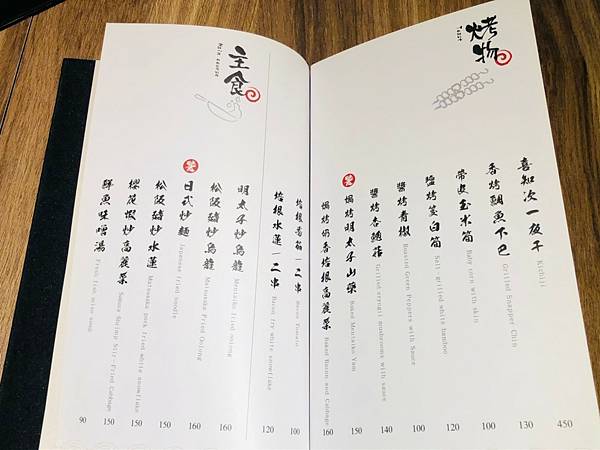 烤物
喜知次一夜干
Kichiji
450
香烤鯛魚下巴
Grilled Snapper Chin
130
帶皮玉米筍
Baby corn with skin
100
鹽烤筊白筍
Salt-grilled white bamboo
120
醬烤青椒
Roasted Green Peppers with Sauce
100
醬烤杏鮑菇
Grilled eryngii mushrooms with sauce
140
焗烤明太子山藥
Baked Mentaiko Yam
150
焗烤奶香培根高麗菜
Baked Bacon and Cabbage
160
培根番茄|二串
Bacon Tomato
100
培根水蓮|二串
Bacon fry white snowflake
120
主食
Main course
明太子炒烏龍
Mentaiko fried oolong
160
松阪豬炒烏龍
Matsusaka Fried Oolong
160
日式炒麵
Japanese fried noodle
150
松阪豬炒水蓮
Matsusaka pork fried white snowflake
150
櫻花蝦炒高麗菜
Sakura Shrimp Stir-Fried Cabbage
150
鮮魚味噌湯
Fresh fish miso soup
90